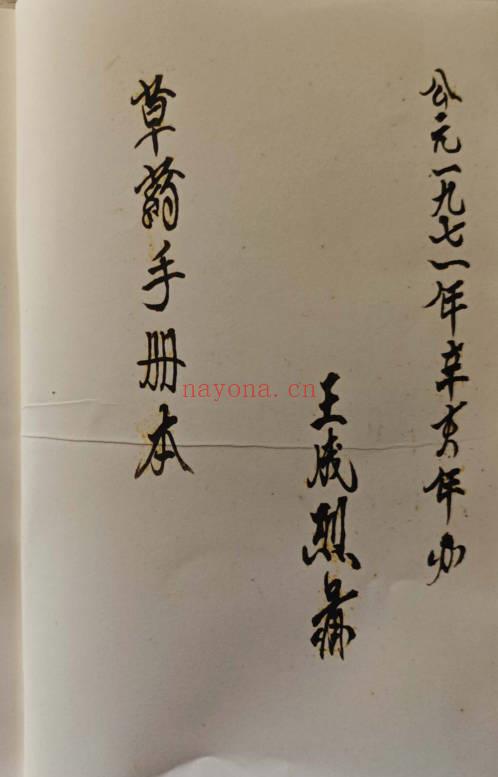 公元一九七一年辛亥年办
王成烈
草药手册本
nayona.cn